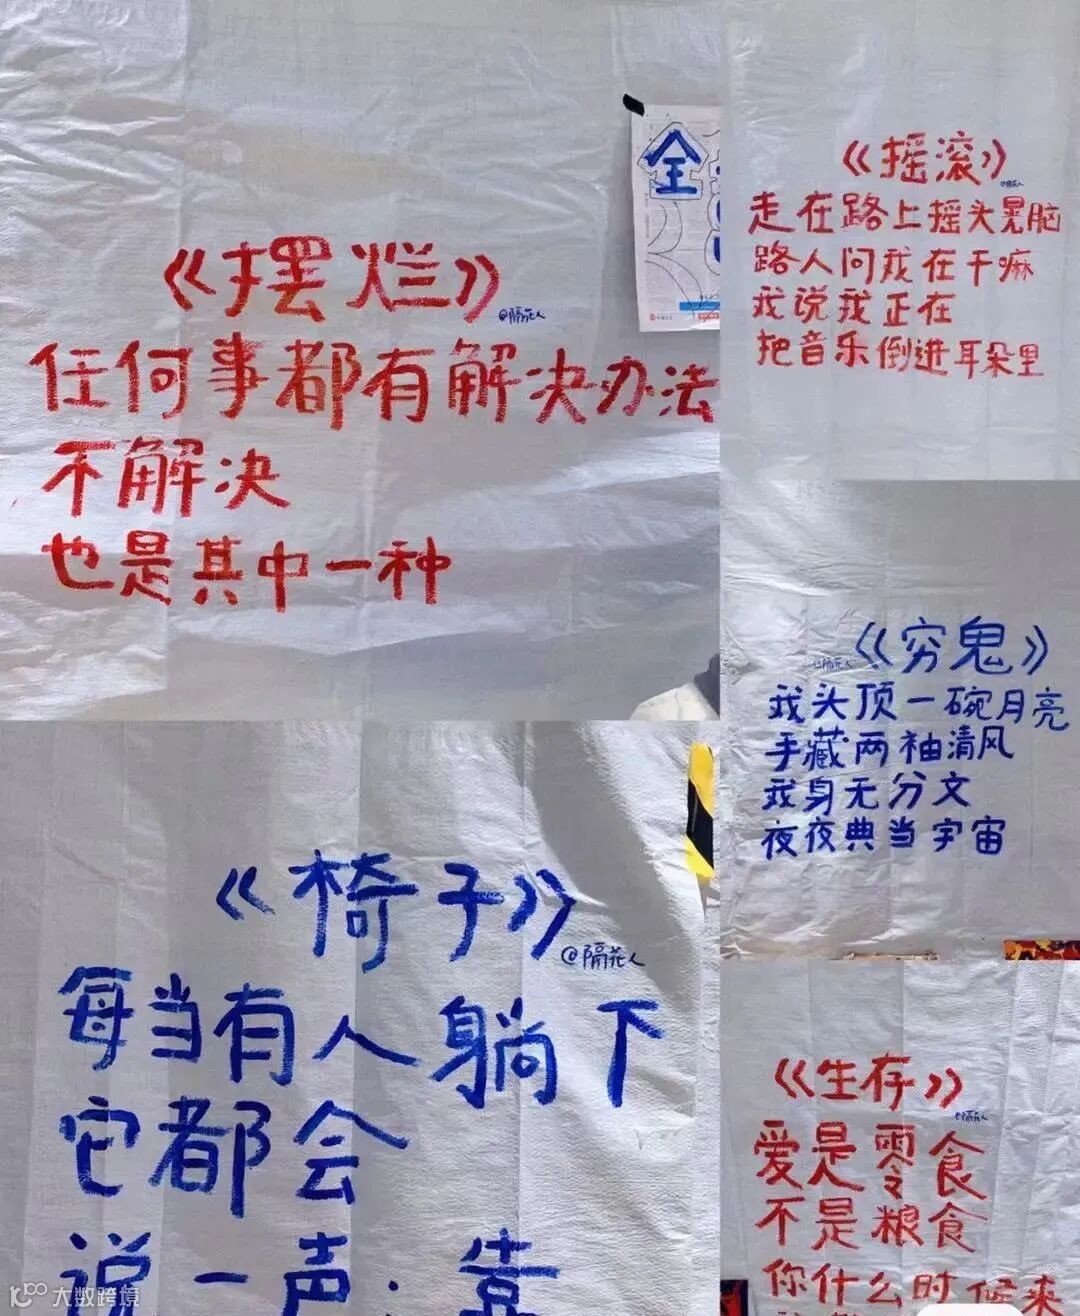 《摆烂》
@隔花人
任何事都有解决办法
不解决
也是其中一种
全
《摇滚》
@隔花人
走在路上摇头晃脑
路人问我在干嘛
我说我正在
把音乐倒进耳朵里
《穷鬼》
@隔花人
我头顶一碗月亮
手藏两袖清风
我身无分文
夜夜典当宇宙
《椅子》
@隔花人
每当有人躺下
它都会
说一声：靠
《生存》
@隔花人
爱是零食
不是粮食
你什么时候来
大数跨境